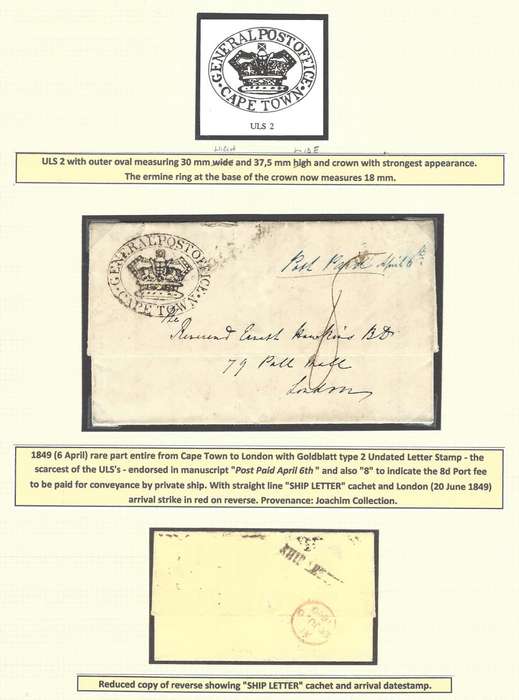 GENERAL POST OFFICE
CAPE TOWN
ULS 2
WIDE
ULS 2 with outer oval measuring 30 mm wide and 37,5 mm high and crown with strongest appearance.
The ermine ring at the base of the crown now measures 18 mm.
GENERAL POST OFFICE
CAPE TOWN
Post Paid April 6th
8
The
Reverend Ernest Hawkins BD
79 Pall Mall
London
1849 (6 April) rare part entire from Cape Town to London with Goldblatt type 2 Undated Letter Stamp - the
scarcest of the ULS's - endorsed in manuscript "Post Paid April 6th" and also "8" to indicate the 8d Port fee
to be paid for conveyance by private ship. With straight line "SHIP LETTER" cachet and London (20 June 1849)
arrival strike in red on reverse. Provenance: Joachim Collection.
SHIP
Reduced copy of reverse showing "SHIP LETTER" cachet and arrival datestamp.